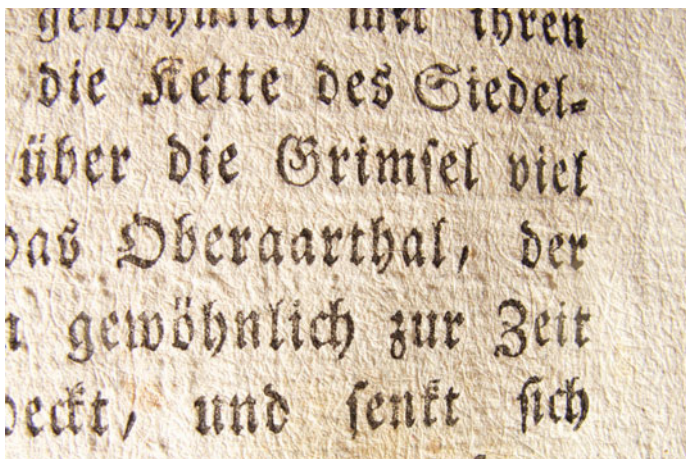 gewöhnlich mit ihren
die Kette des Siedel⸗
über die Grimſel viel
das Oberaarthal, der
gewöhnlich zur Zeit
deckt, und ſenkt ſich